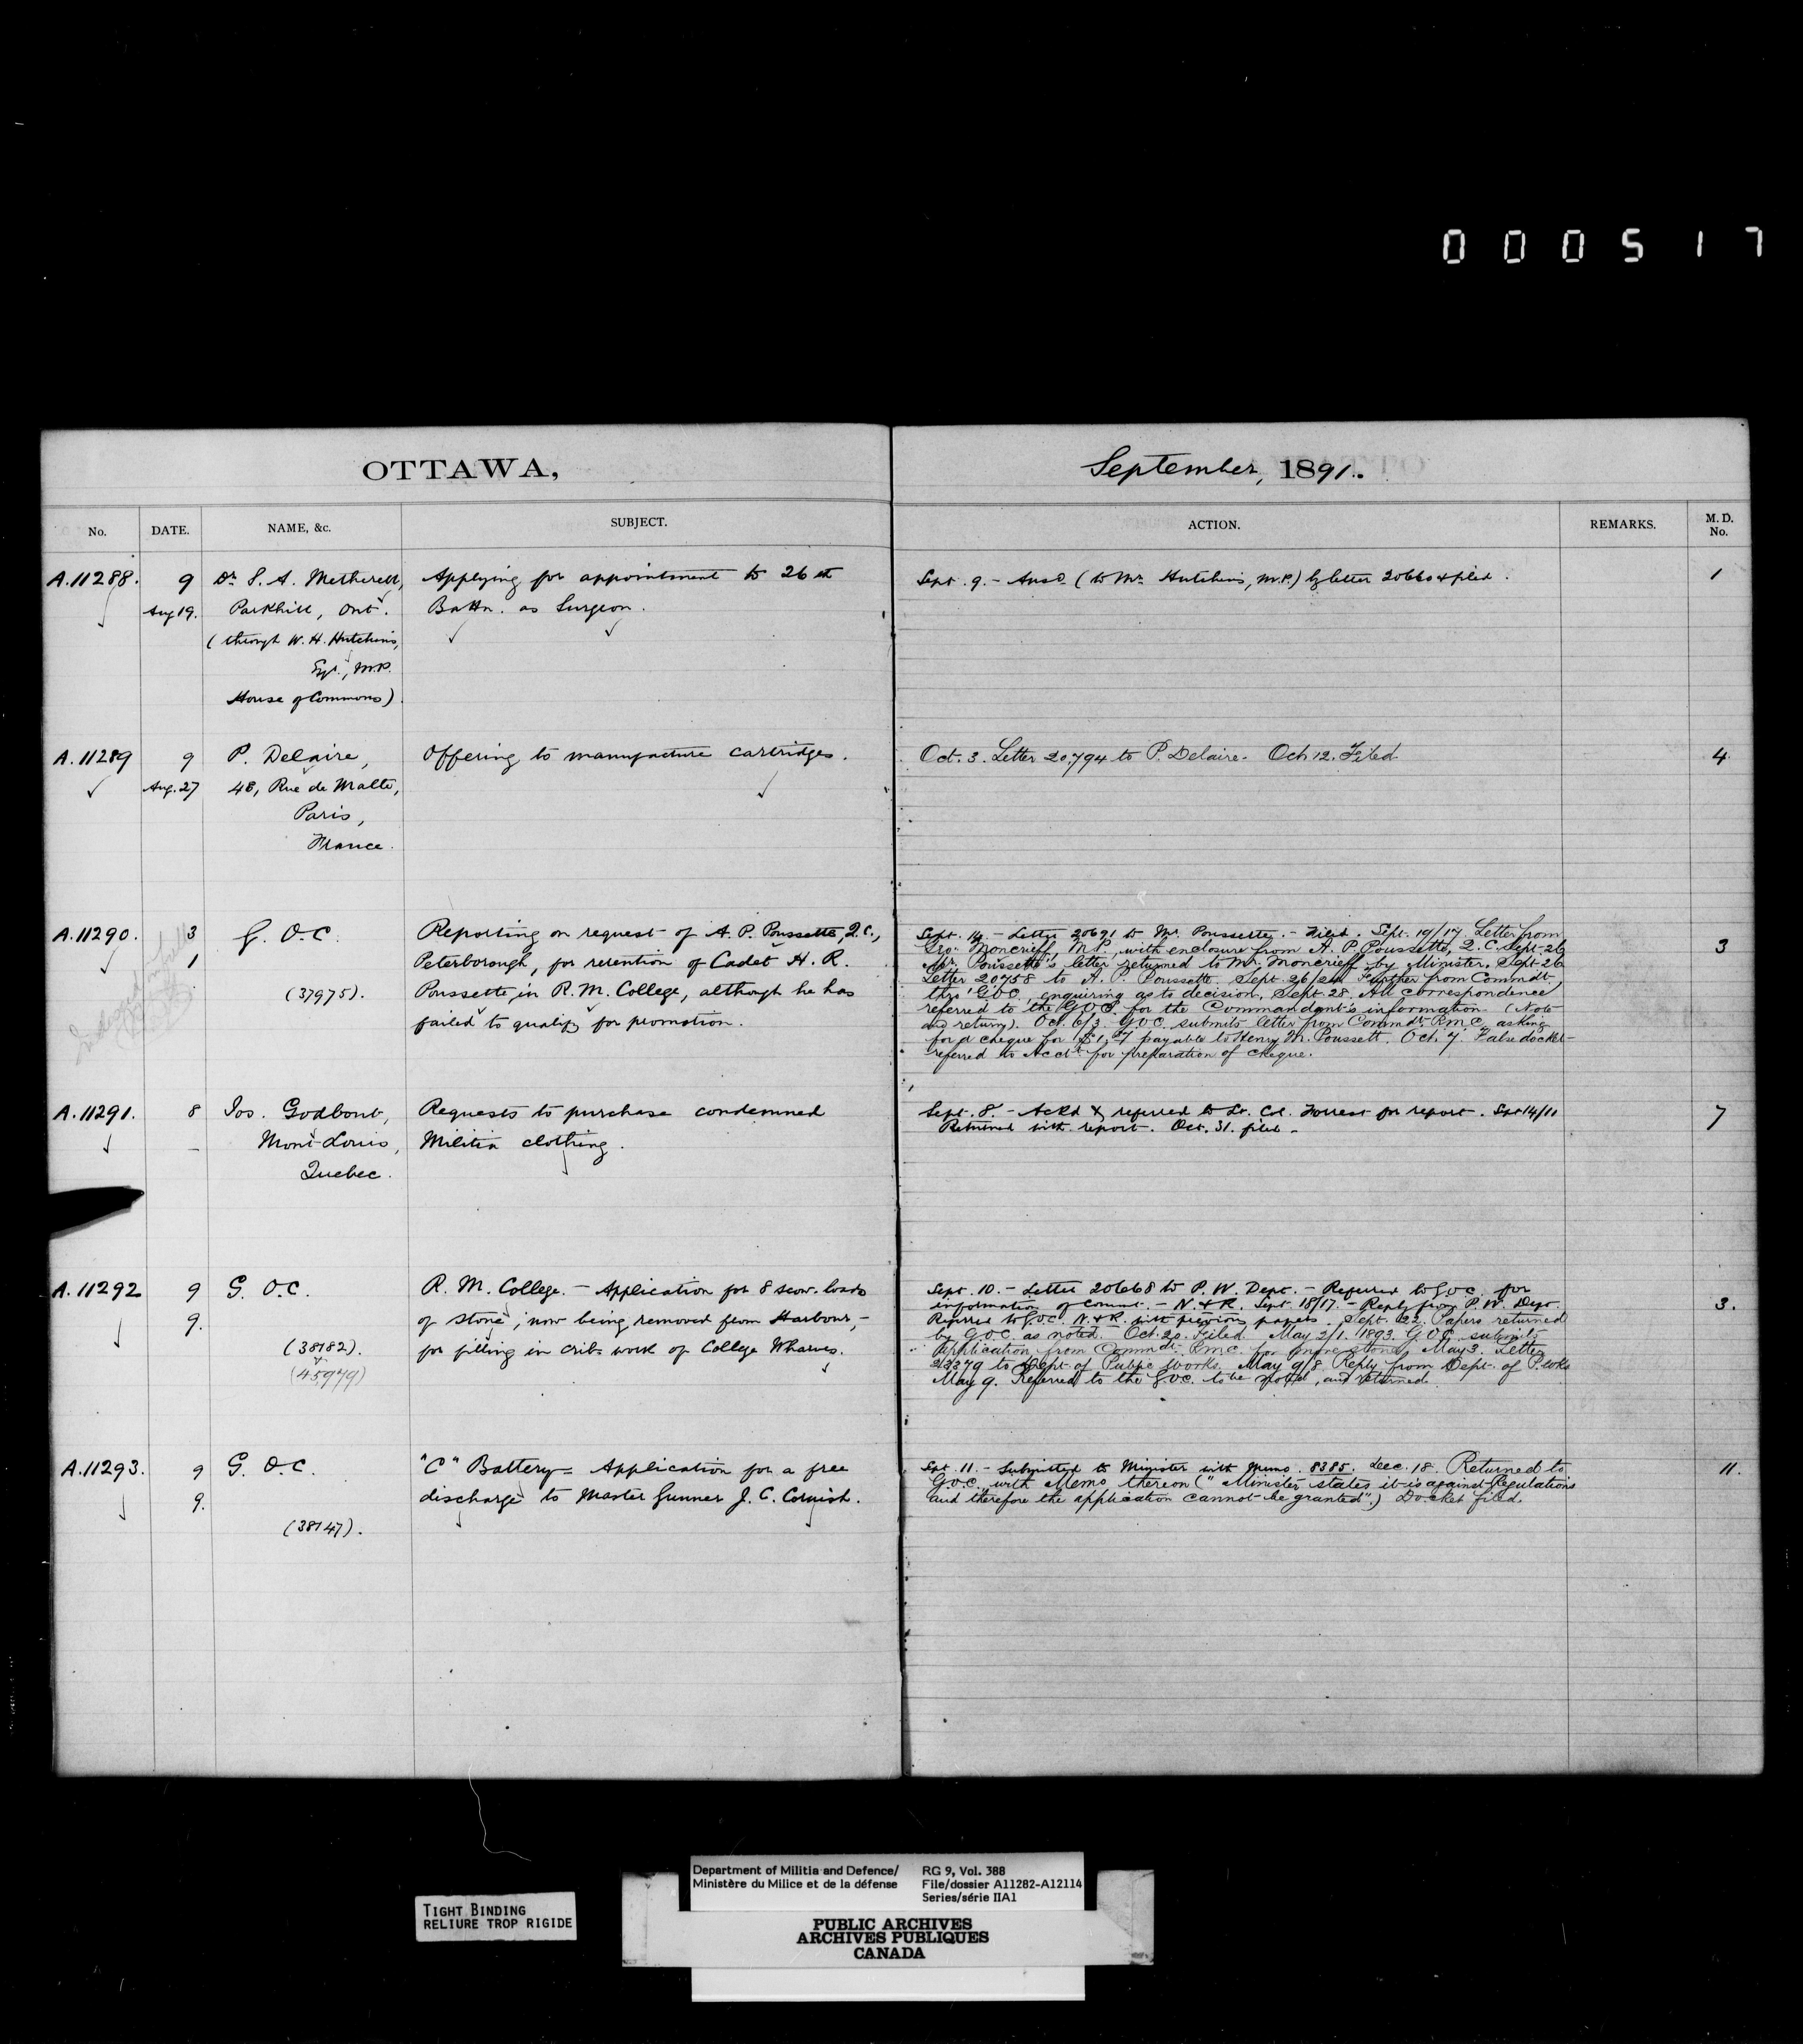 000517
OTTAWA,
September, 1891.
No.
DATE.
NAME, &c.
SUBJECT.
ACTION.
REMARKS.
M. D. No.
A.11288.
9
Aug 19.
Dr. S. A. Metherell,
Parkhill, Ont.
(through W. H. Hutchins,
Esq., M.P.
House of Commons)
Applying for appointment to 26th
Battn. as Surgeon.
Sept. 9. - Ansd. (to Mr. Hutchins, M.P.) by letter 20660 & filed.
1
A.11289
9
Aug. 27
P. Delaire,
48, Rue de Malte,
Paris,
France.
Offering to manufacture cartridges.
Oct. 3. Letter 20,794 to P. Delaire. Oct 12. Filed
4
A.11290.
3
1
G. O. C.
(37975).
Reporting on request of A. P. Poussette, Q.C.,
Peterborough, for retention of Cadet H. R.
Poussette in R. M. College, although he has
failed to qualify for promotion.
Sept. 14. - Letter 20691 to Mr. Poussette. - Filed. Sept. 19/17. Letter from
Geo. Moncrieff, M.P., with enclosure from A. P. Poussette, Q.C. Sept-26
Mr. Poussette's letter returned to Mr. Moncrieff by Minister. Sept-26
Letter 20758 to A. P. Poussette. Sept. 26/24 Further from Commdt.,
thro' GOC, enquiring as to decision. Sept. 28. All correspondence
referred to the G.O.C. for the Commandant's information (Note
and return). Oct. 6/3. GOC. submits letter from Commdt. R.M.C. asking
for a cheque for payable to Henry M. Poussett. Oct. 7. False docket-
referred to Acct. for preparation of cheque.
3
A.11291.
8
-
Jos. Godbout,
Mont-Louis,
Quebec.
Requests to purchase condemned
Militia clothing.
Sept. 8. - Ackd & referred to Lt. Col. Forrest for report. Sept 14/11
Returned with report. Oct. 31. filed -
7
A.11292
9
9.
G. O. C.
(38182).
(45979)
R. M. College. - Application for 8 scow-loads
of stone, now being removed from Harbour, -
for filling in crib-work of College Wharves.
Sept. 10. - Letter 20668 to P. W. Dept. - Referred to G.O.C. for
information of Commt. - N. & R. Sept. 18/17. - Reply from P. W. Dept.
Referred to G.O.C. N. & R. with previous papers. Sept. 22. Papers returned
by G.O.C. as noted. Oct. 20. Filed. May 2/1. 1893. G.O.C. submits
Application from Commdt. R.M.C. for more stone. May 3. Letter
to Dept. of Public Works. May 9/8 Reply from Dept. of P. Wks
May 9. Referred to the G.O.C. to be noted, and returned.
3.
A.11293.
9
9.
G. O. C.
(38147).
"C" Battery - Application for a free
discharge to Master Gunner J. C. Cornish.
Sept. 11. - Submitted to Minister with Memo. 8385. Dec. 18. Returned to
G.O.C. with Memo thereon ("Minister states it is against Regulations
and therefore the application cannot be granted".) Docket filed.
11.
Department of Militia and Defence/
Ministère du Milice et de la défense
RG 9, Vol. 388
File/dossier A11282-A12114
Series/série IIA1
TIGHT BINDING
RELIURE TROP RIGIDE
PUBLIC ARCHIVES
ARCHIVES PUBLIQUES
CANADA